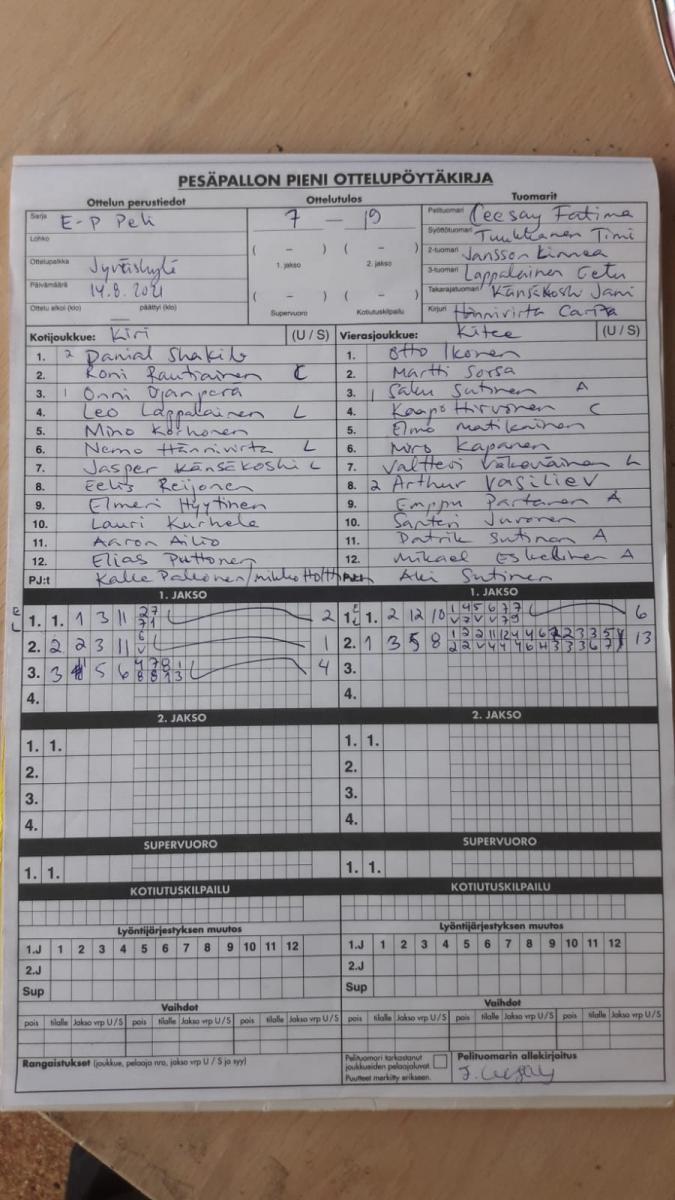 PESÄPALLON PIENI OTTELUPÖYTÄKIRJA
Ottelun perustiedot
Sarja E-P Peli
Lohko
Ottelupaikka Jyväskylä
Päivämäärä 14.8.2021
Ottelu alkoi (klo) päättyi (klo)
Ottelutulos
7 – 19
( – ) ( – )
1. jakso 2. jakso
( – ) ( – )
Supervuoro Kotiutuskilpailu
Tuomarit
Pelituomari Ceesay Fatima
Syöttötuomari Tuukkanen Timi
2-tuomari Jansson Linnea
3-tuomari Lappalainen Eetu
Takarajatuomari Känsäkoski Jani
Kirjuri Hännivirta Carita
Kotijoukkue: Kiri (U / S)
1. 2 Danial Shakib
2. Roni Rautiainen C
3. 1 Onni Ojanperä
4. Leo Lappalainen L
5. Mino Korhonen
6. Nemo Hännivirta L
7. Jasper Känsäkoski L
8. Eelis Reijonen
9. Elmeri Hyytinen
10. Lauri Kurhela
11. Aaron Ailio
12. Elias Puttonen
PJ:t Kalle Pakonen/Mikko
Vierasjoukkue: Kitee (U / S)
1. Otto Ikonen
2. Martti Sorsa
3. 1 Saku Sutinen A
4. Kaapo Hirvonen C
5. Elmo Matikainen
6. Miro Kapanen
7. Valtteri Väkeväinen L
8. 2 Arthur Vasiliev
9. Emppu Partanen A
10. Santeri Juvonen
11. Patrik Sutinen A
12. Mikael Eskelinen A
Aki Sutinen
1. JAKSO
1. 1. 1 3 11 2
2. 2 2 3 11 1
3. 3 5 6 4
4.
1. JAKSO
1. 1. 2 12 10 6
2. 1 3 5 8 13
3.
4.
2. JAKSO
1. 1.
2.
3.
4.
2. JAKSO
1. 1.
2.
3.
4.
SUPERVUORO
1. 1.
SUPERVUORO
1. 1.
KOTIUTUSKILPAILU
KOTIUTUSKILPAILU
Lyöntijärjestyksen muutos
1.J 1 2 3 4 5 6 7 8 9 10 11 12
2.J
Sup
Lyöntijärjestyksen muutos
1.J 1 2 3 4 5 6 7 8 9 10 11 12
2.J
Sup
Vaihdot
pois tilalle Jakso vrp U / S pois tilalle Jakso vrp U / S pois tilalle Jakso vrp U / S
Vaihdot
pois tilalle Jakso vrp U / S pois tilalle Jakso vrp U / S pois tilalle Jakso vrp U / S
Rangaistukset (joukkue, pelaaja nro, jakso vrp U / S ja syy)
Pelituomari tarkastanut
joukkueiden pelaajaluvat.
Puutteet merkitty erikseen.
Pelituomarin allekirjoitus